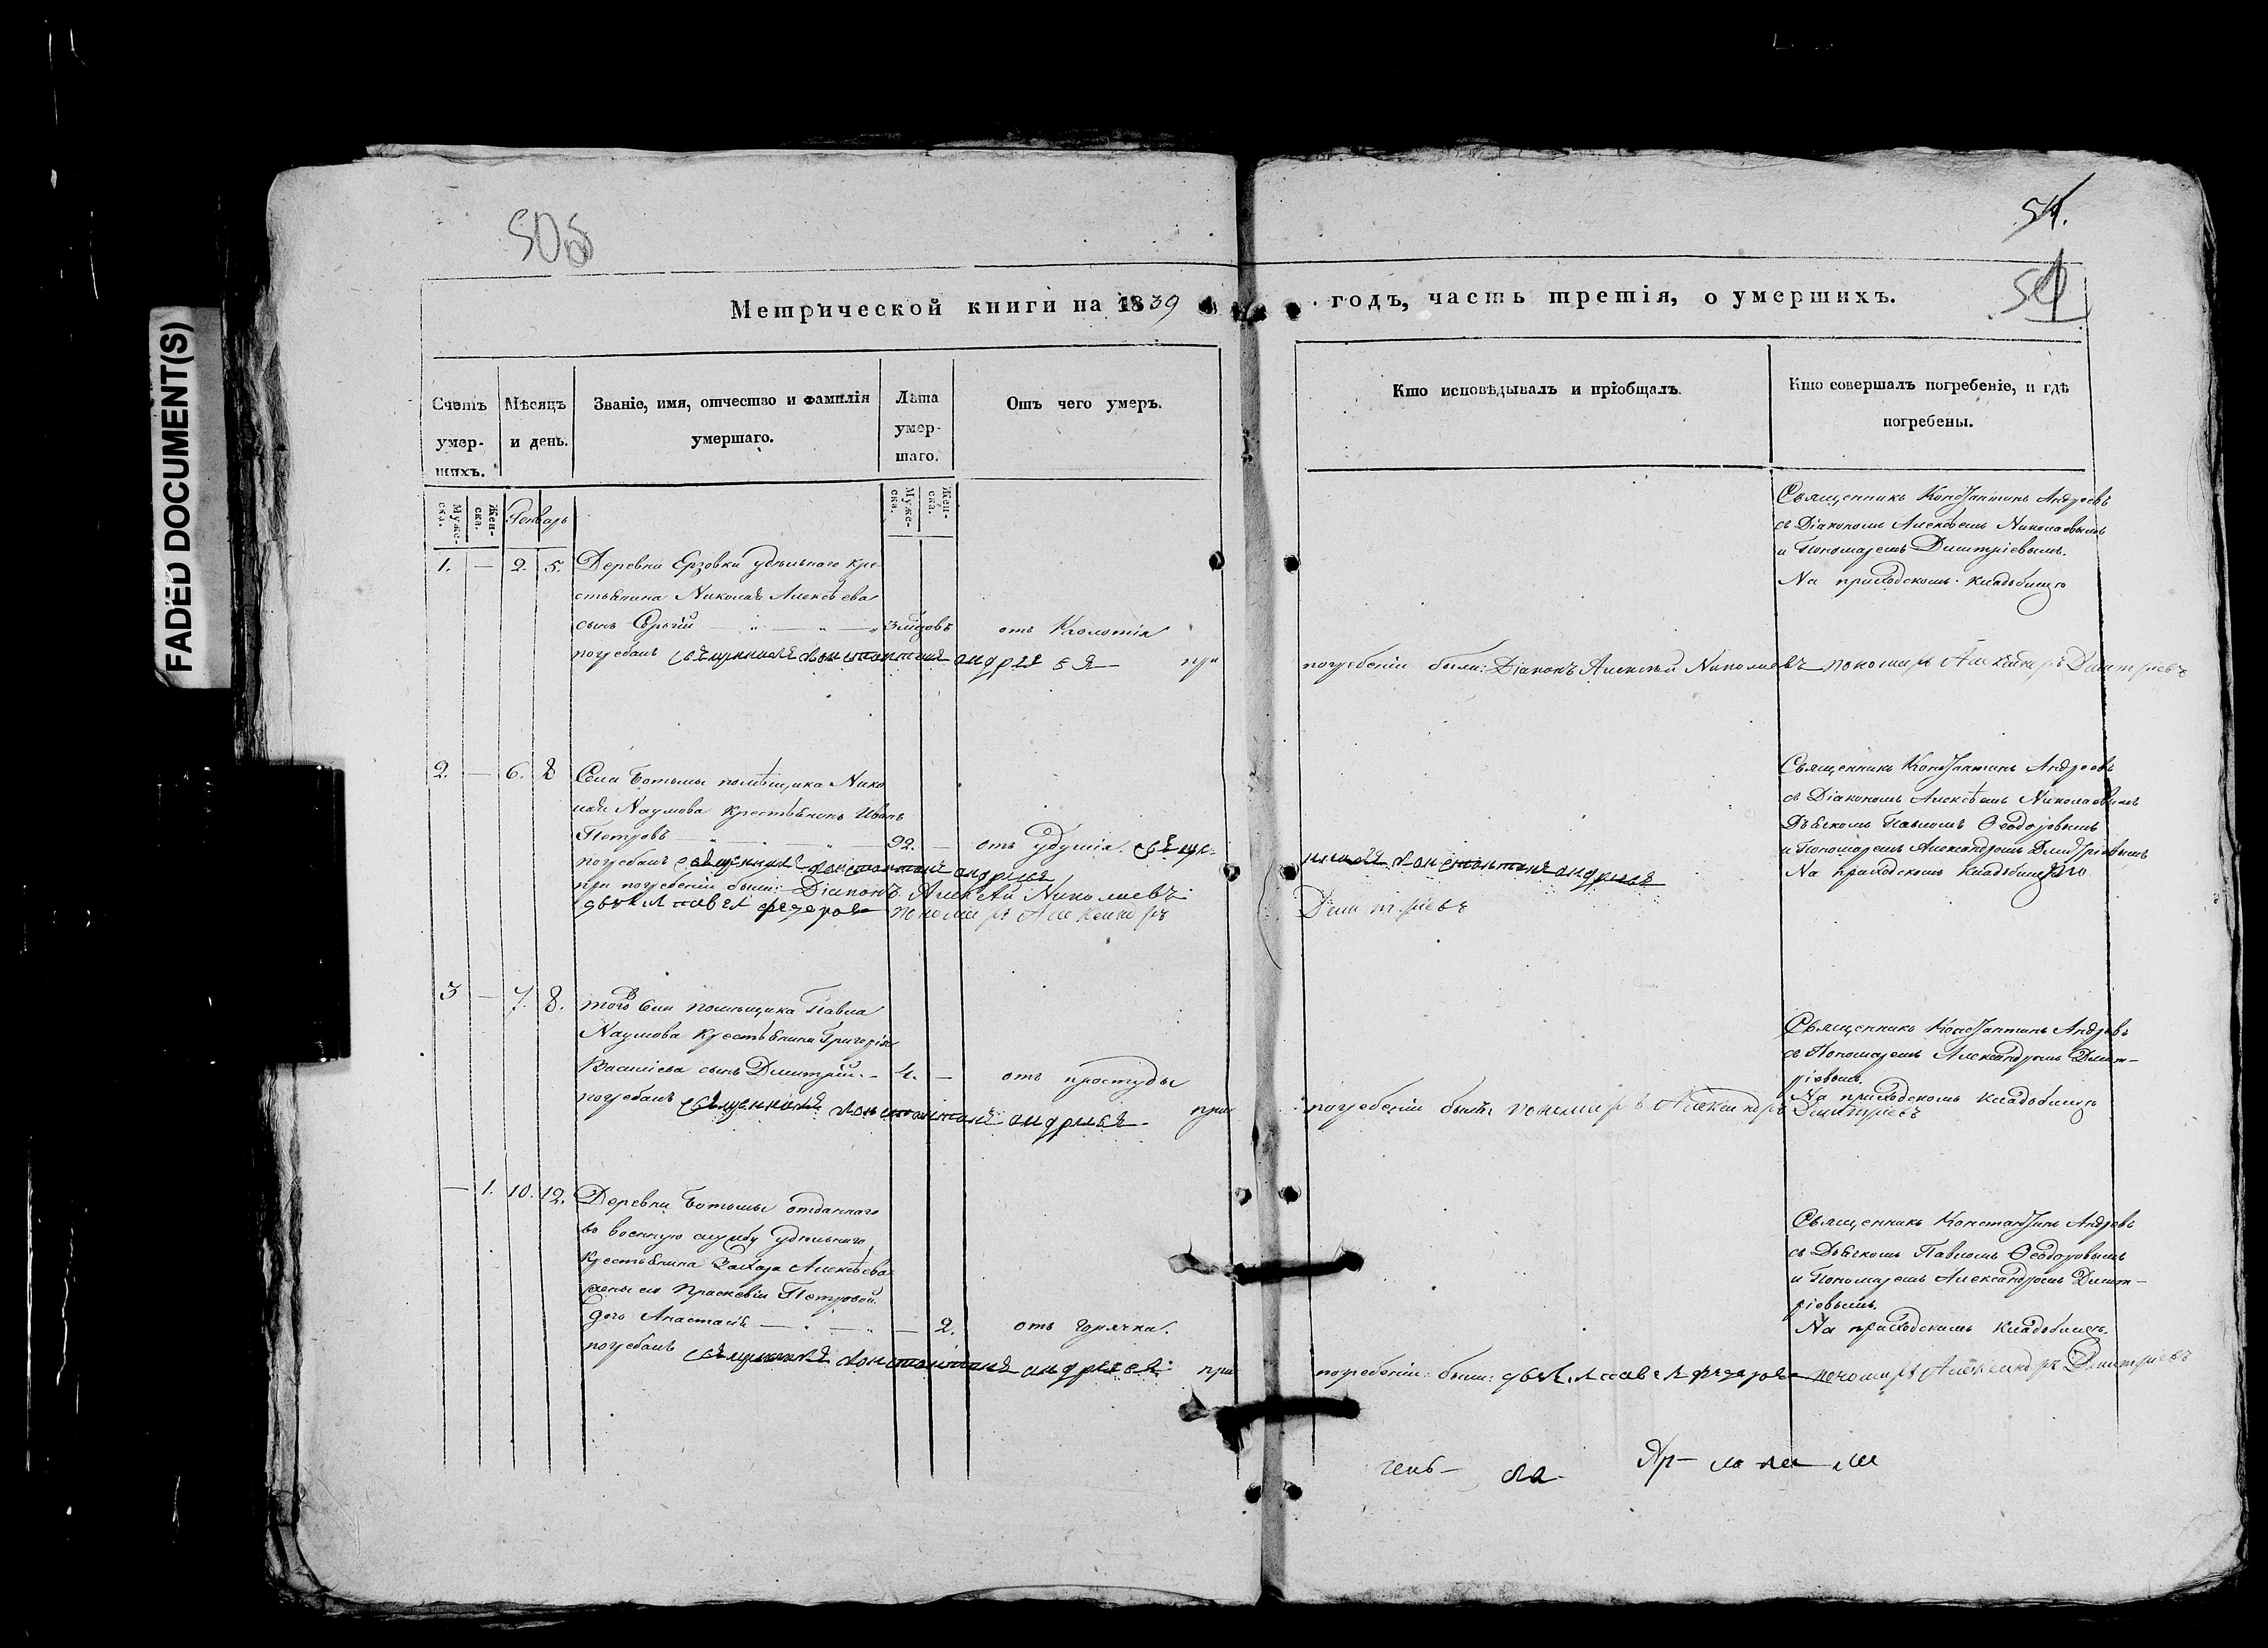 FADED DOCUMENT(S)
505
54.
54
Метрической книги на 1839 годъ, часть третія, о умершихъ.
Счетъ умер-шихъ.
Мѣсяцъ и день.
Званіе, имя, отчество и фамилія умершаго.
Лѣта умер-шаго.
Отъ чего умеръ.
Кто исповѣдывалъ и пріобщалъ.
Кто совершалъ погребеніе, и гдѣ погребены.
Муже-ска.
Жен-ска.
Генварь
Муже-ска.
Жен-ска.
1. — 2. 5.
Деревни Ерзовки удѣльнаго кре-
стьянина Николая Алексѣева
сынъ Сергій
отъ
погребалъ священникъ константинъ андреевъ при
погребеніи были: Діаконъ Алексѣй Николаевъ пономарь Александръ Дмитріевъ
Священникъ Константинъ Андреевъ
съ Діакономъ Алексѣемъ Николаевымъ
и Пономаремъ Дмитріевымъ.
На приходскомъ кладбищѣ
2. — 6. 8
Села Ботьмы помѣщика Нико
лая Наумова крестьянинъ Иванъ
Петровъ — 92. — отъ удушія. свяще-
погребалъ священникъ константинъ андреевъ
нникъ константинъ андреевъ
при погребеніи были: Діаконъ Алексѣй Николаевъ
дьячекъ павелъ федоровъ пономарь Александръ
Дмитріевъ
Священникъ Константинъ Андреевъ
съ Діакономъ Алексѣемъ Николаевымъ
Дьячкомъ Павломъ Ѳеодоровымъ
и Пономаремъ Александромъ Дмитріевымъ
На приходскомъ кладбищѣ
3 — 7. 8.
того села помѣщика Павла
Наумова крестьянина Григорія
Василіева сынъ Дмитрій. — 4. — отъ простуды
погребалъ священникъ константинъ андреевъ при
погребеніи былъ пономарь Александръ Дмитріевъ
Священникъ Константинъ Андреевъ
съ Пономаремъ Александромъ Дмит-
ріевымъ.
На приходскомъ кладбищѣ
— 1. 10. 12.
Деревни Ботьмы отданнаго
въ военную службу удѣльнаго
крестьянина Захара Алексѣева
жены его Прасковіи Петровой
дочь Анастасія — 2. отъ горячки.
погребалъ священникъ константинъ андреевъ при
погребеніи были: дьячекъ павелъ федоровъ пономарь Александръ Дмитріевъ
Священникъ Константинъ Андреевъ
съ Дьячкомъ Павломъ Ѳеодоровымъ
и Пономаремъ Александромъ Дмит-
ріевымъ.
На приходскомъ кладбищѣ.